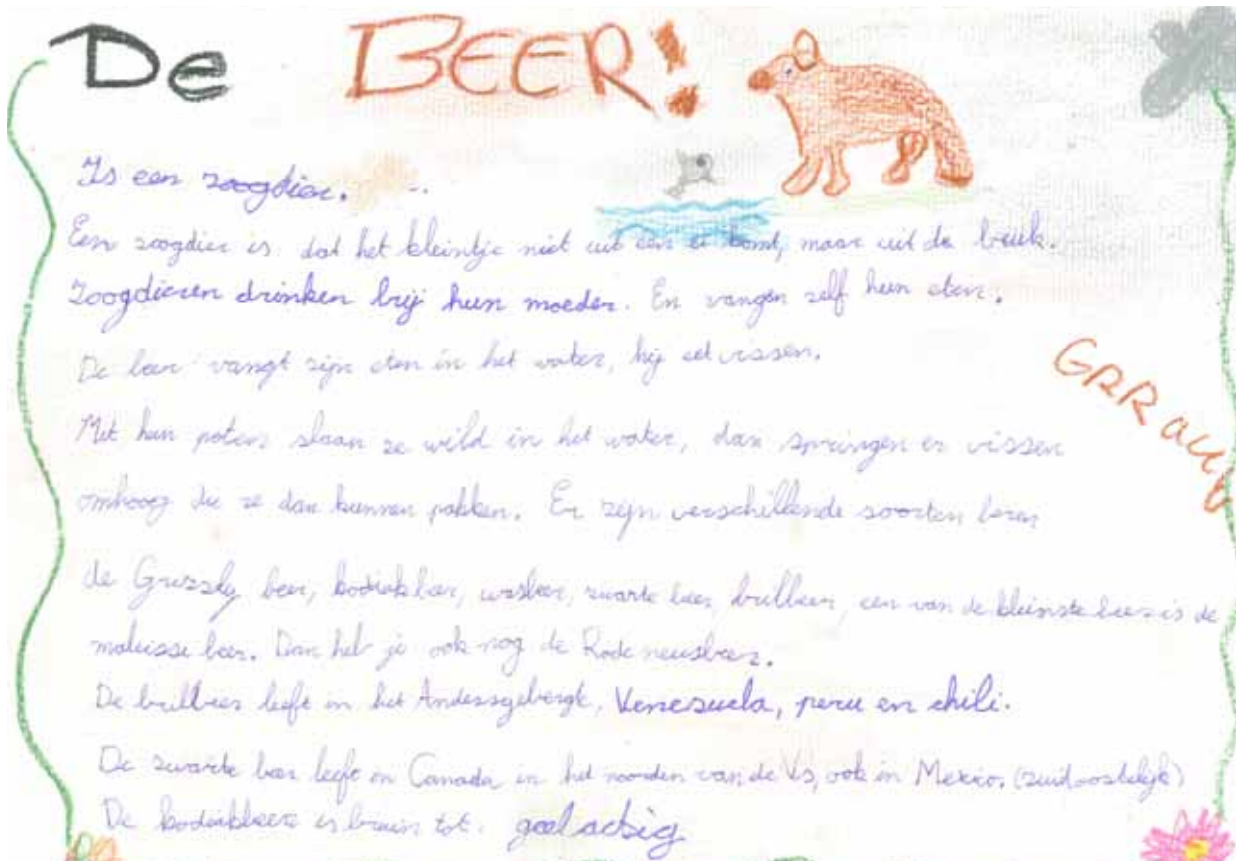 De BEER!
Is een zoogdier.
Een zoogdier is dat het kleintje niet uit een ei komt, maar uit de buik.
Zoogdieren drinken bij hun moeder. En vangen zelf hun eten.
De beer vangt zijn eten in het water, hij eet vissen.
GRRauw
Met hun poten slaan ze wild in het water, dan springen er vissen
omhoog die ze dan kunnen pakken. Er zijn verschillende soorten beren
de Grizzly beer, kodiakbeer, wasbeer, zwarte beer, brilbeer, een van de kleinste beer is de
maleisse beer. Dan heb je ook nog de Rode neusbeer.
De brilbeer leeft in het Andesgebergte, Venezuela, peru en chili.
De zwarte beer leeft in Canada in het noorden van de Vs, ook in Mexico. (zuidoostelijk)
De kodiakbeer is bruin tot geelachig